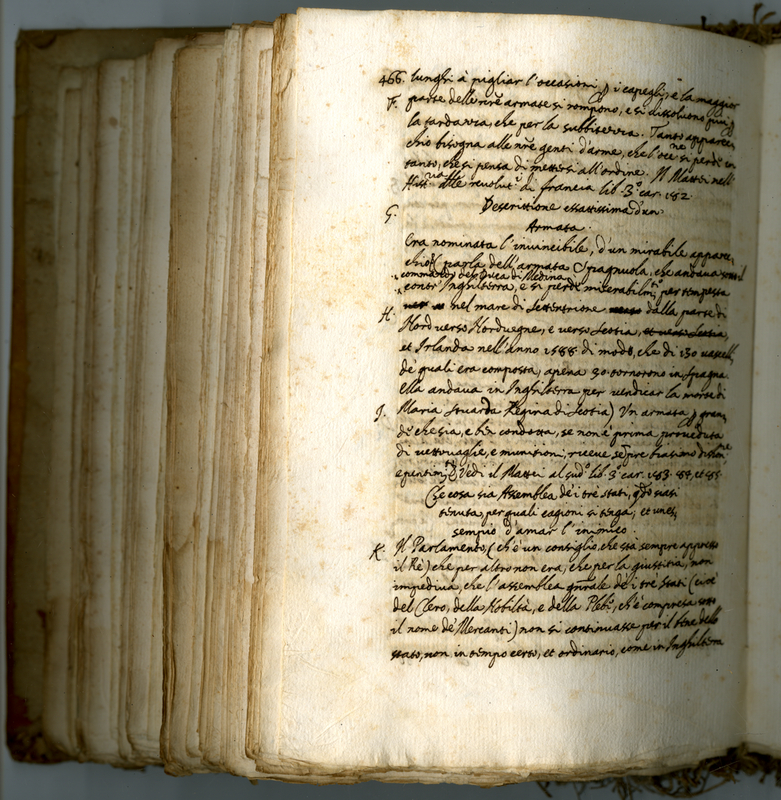 466. lunghi à pigliar l'occasioni p i capegli, e la maggior
F. parte delle nr̃e armate si rompono, e si dissoluono piu p
la tardanza, che per la subbitezza. Tanto apparec
chio bisogna alle nr̃e genti d'arme, che l'occ.ne si perde in
tanto, che si pensa di mettersi all'ordine. Il Mattei nell'
Hist.ria alle reuolut.ni di francia lib. 3.o car. 182.
G. Descrittione essattissima d'un
Armata.
Era nominata l'inuincibile, d'un mirabile apparec
chio (parla dell'armata Spagnuola, che andaua
commandata del Duca di Medina
contr'Inghilterra, e si perdè miserabilm.te per tempesta
H. nel mare di Settentrione dalla parte di
Nord uerso Noruegne, e uerso Scotia,
et Irlanda nell'anno 1588. di modo, che di 130 uascelli,
de quali era composta, apena 30. tornorono in Spagna.
Ella andaua in Inghilterra per uendicar la morte di
J. Maria Stuarda Regina di Scotia) Un armata p gran
de che sia, e ben condotta, se non è prima proueduta
di uettouaglie, e munitioni, riceue sẽpre biasimo
e pentim.to Vedi il Mattei al sud.o lib. 3.o car. 183. 84, et 85.
Che cosa sia Assemblea de i trè stati, q̃do
tenuta, per quali cagioni si tenga, et un es
sempio d'amar l'inimico.
K. Il Parlamento, (ch'è un consiglio, che stà sempre appresso
il Rè) che per altro non era, che per la giustitia, non
impediua, che l'assemblea gñrale de i trè stati (cioè
del Clero, della Nobiltà, e della Plebe, ch'è compresa sotto
il nome de Mercanti) non si continuasse per il bene dello
stato, non in tempo certo, et ordinario, come in Inghilterra